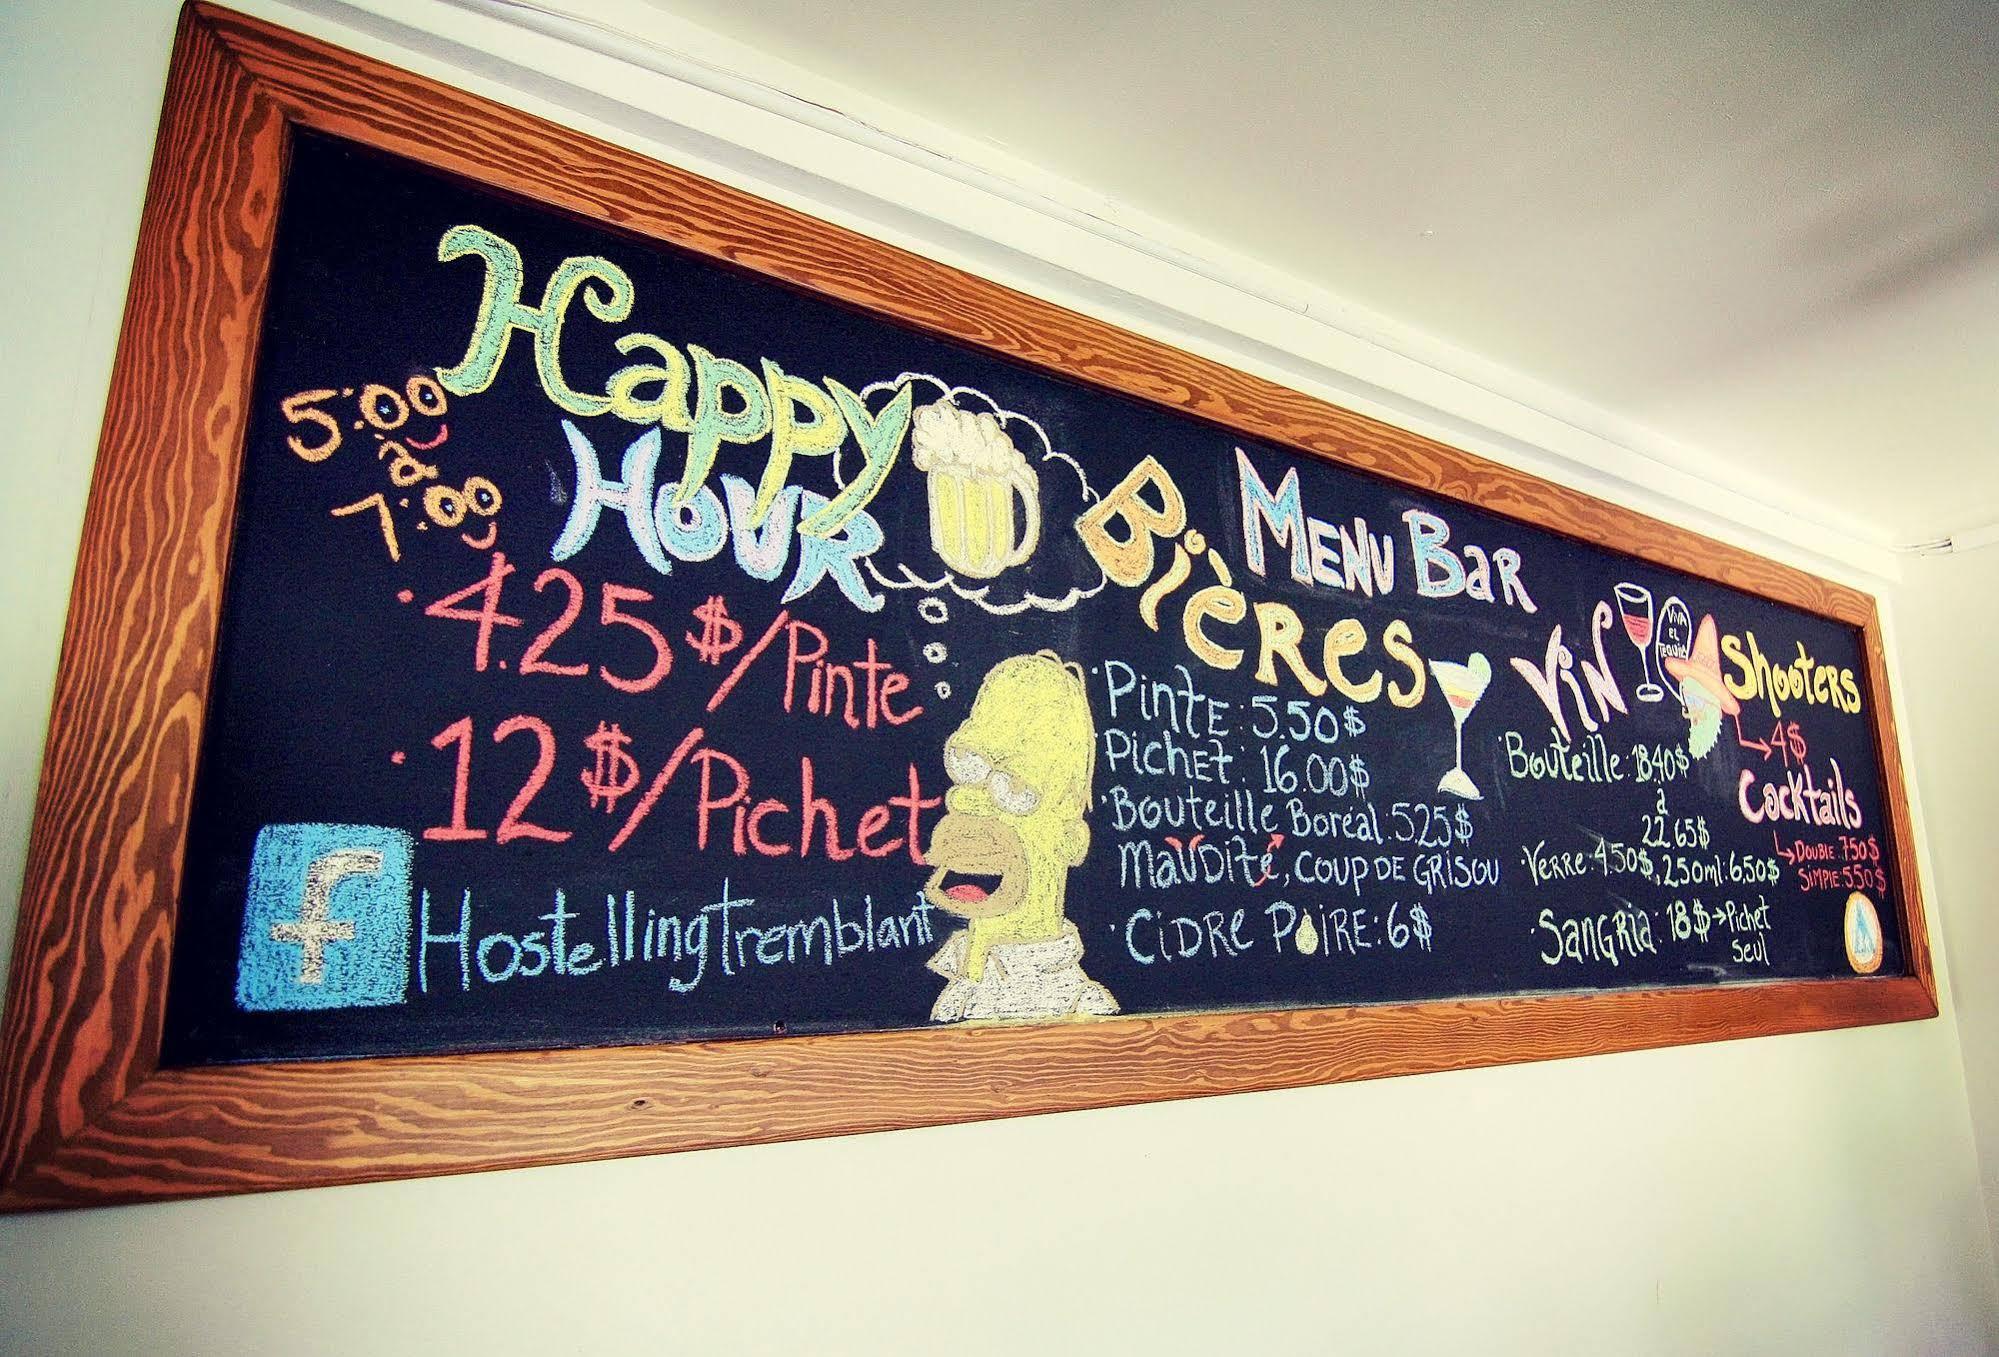 Happy
Hour
5:00
à
7:00
• 4.25$/Pinte
• 12$/Pichet
f HostellingTremblant
Menu Bar
Bières
• Pinte: 5.50$
• Pichet: 16.00$
• Bouteille Boréal: 5.25$
Maudite, Coup de Grisou
• Cidre Poire: 6$
Vin
• Bouteille: 18.40$
à
22.65$
• Verre: 4.50$, 250ml: 6.50$
• Sangria: 18$ → Pichet
Seul
Viva
el
tequila
Shooters
↳ 4$
Cocktails
↳ Double: 7.50$
Simple: 5.50$